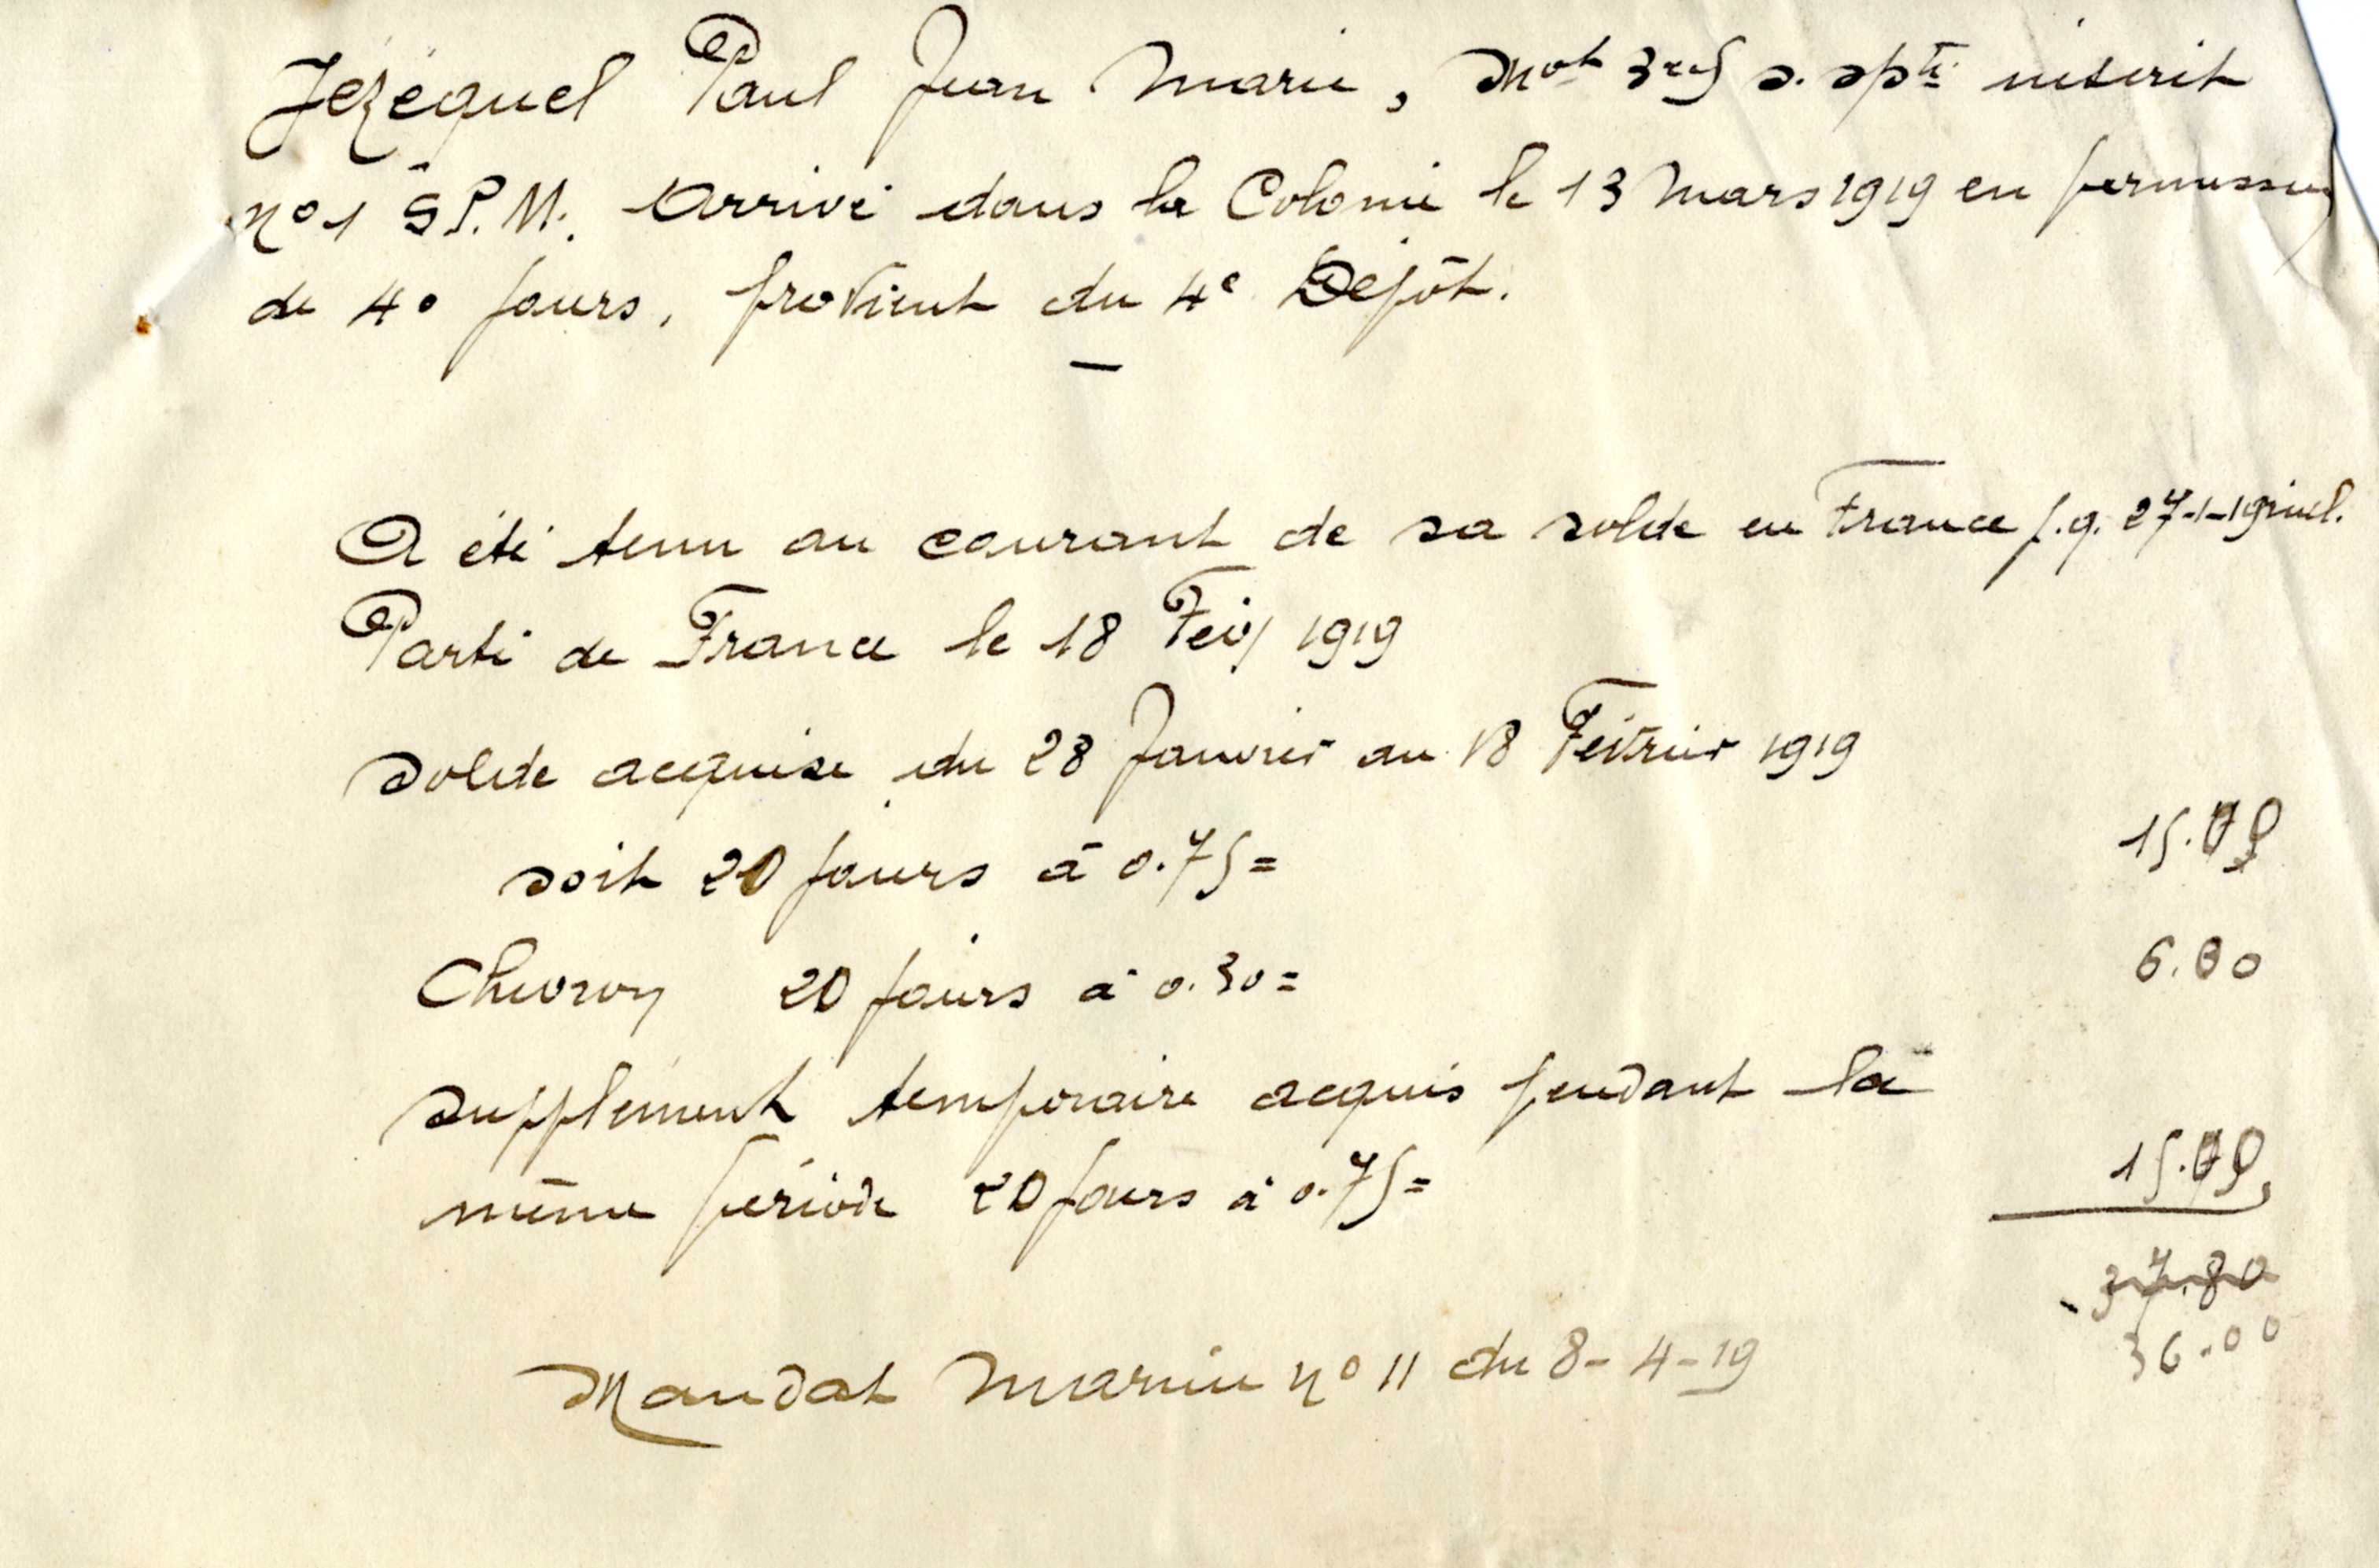 Jézéquel Paul Jean Marie, Mot 3e cl s. spté inscrit
n° 1 S.P.M. Arrivé dans la Colonie le 13 Mars 1919 en permission
de 40 jours, provient du 4e Dépôt.
—
A été tenu au courant de sa solde en France p.q. 27-1-19 incl.
Parti de France le 18 Fév 1919
Solde acquise du 28 Janvier au 18 Février 1919
soit 20 jours à 0.75 = 15.00
Chevron 20 jours à 0.30 = 6.00
Supplément temporaire acquis pendant la
même période 20 jours à 0.75 = 15.00
37.80
36.00
Mandat Marine n° 11 du 8-4-19